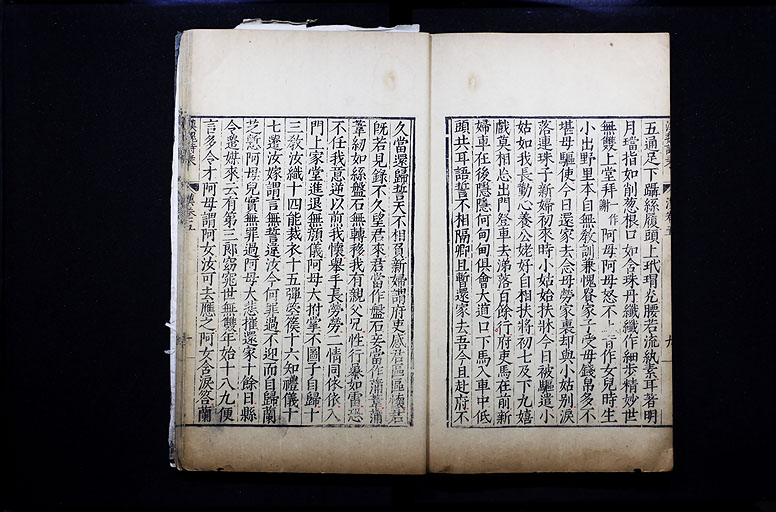 五通足下躡絲履頭上玳瑁光腰若流紈素耳著明
月璫指如削葱根口如含珠丹纖纖作細步精妙世
無雙上堂拜謝作阿母阿母怒不止昔作女兒時生
小出野里本自無教訓兼愧貴家子受母錢帛多不
堪母驅使今日還家去念母勞家裏却與小姑别淚
落連珠子新婦初來時小姑始扶牀今日被驅遣小
姑如我長勤心養公姥好自相扶將初七及下九嬉
戲莫相忘出門登車去涕落百餘行府吏馬在前新
婦車在後隱隱何甸甸俱會大道口下馬入車中低
頭共耳語誓不相隔卿且暫還家去吾今且赴府不
久當還歸誓天不相負新婦謂府吏感君區區懷君
旣若見錄不久望君來君當作盤石妾當作蒲葦蒲
葦紉如絲盤石無轉移我有親父兄性行暴如雷恐
不任我意逆以煎我懷舉手長勞勞二情同依依入
門上家堂進退無顏儀阿母大拊掌不圖子自歸十
三敎汝織十四能裁衣十五彈箜篌十六知禮儀十
七遣汝嫁謂言無誓違汝今何罪過不迎而自歸蘭
芝慙阿母兒實無罪過阿母大悲摧還家十餘日縣
令遣媒來云有第三郎窈窕世無雙年始十八九便
言多令才阿母謂阿女汝可去應之阿女含淚答蘭